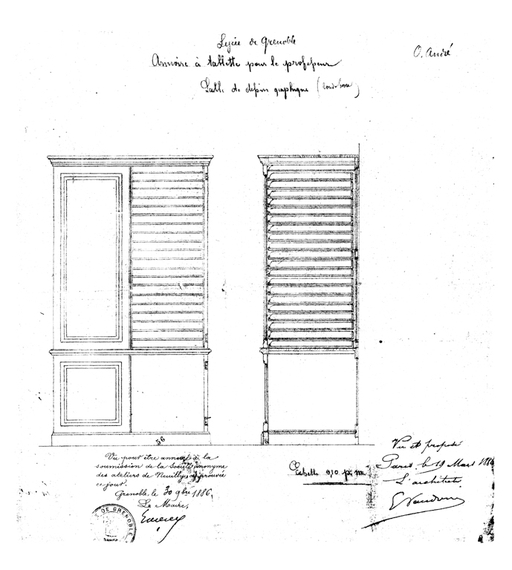 Lycée de Grenoble
O. André
Armoire à tablette pour le professeur
Salle de dessin graphique
56
Vu pour être annexé à la
soumission de la Société anonyme
des ateliers de Neuilly
ce jour.
Grenoble, le 30 9bre 1886,
Le Maire,
DE GRENOBLE
Echelle 0,10 p. m
Vu et proposé
Paris le 19 Mars 1886
L'architecte
E Vaudremer